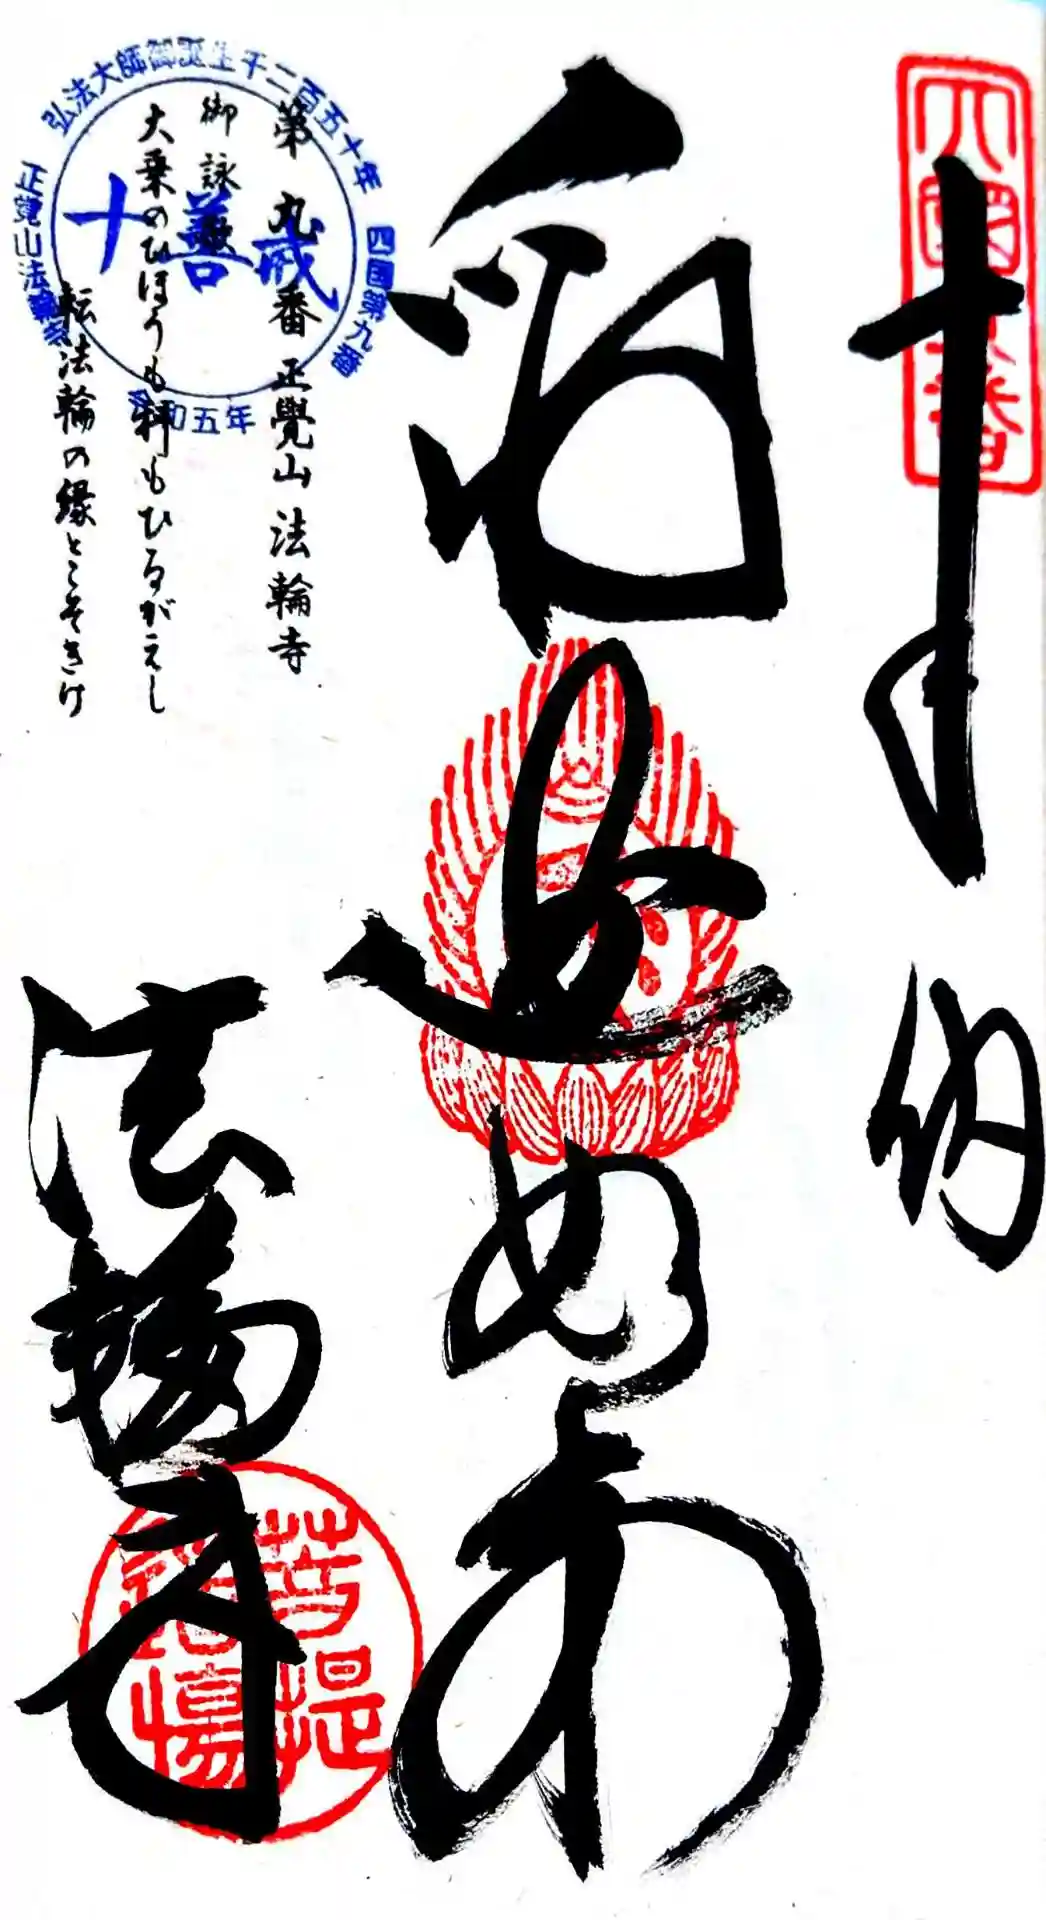 奉納
四国第九番
釈迦如来
第九番 正覺山 法輪寺
御詠歌
大乗のひほうも科もひるがえし
転法輪の縁とこそきけ
弘法大師御誕生千二百五十年
四国第九番
正覺山法輪寺
令和五年
十善戒
法輪寺
菩提
道場